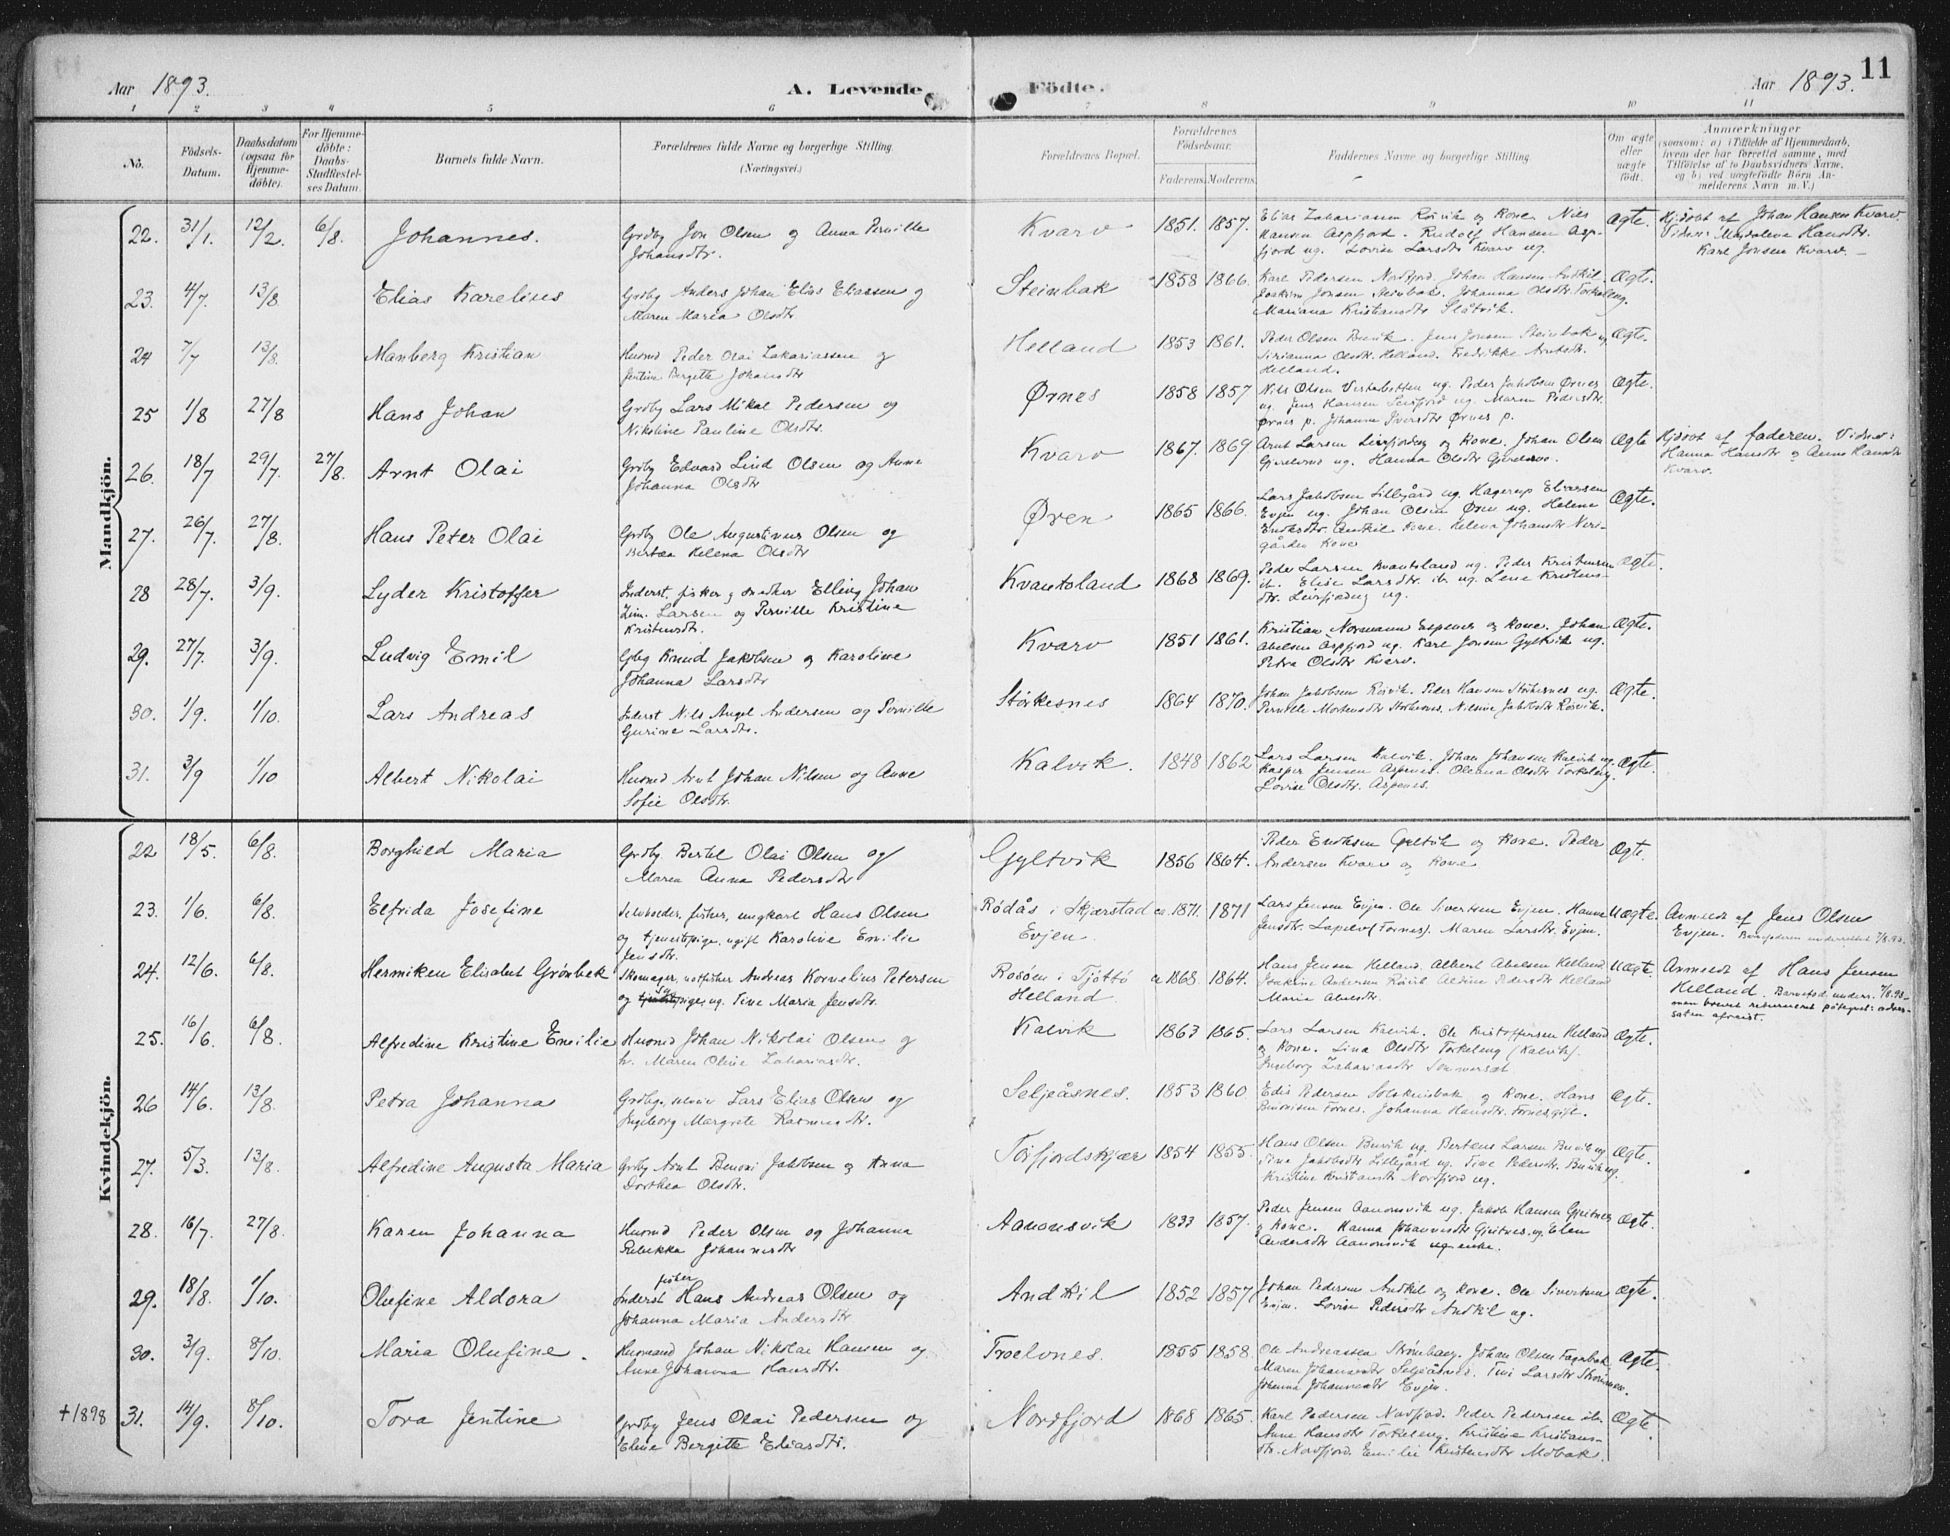 11
Aar 1893. A. Levende Födte. Aar 1893.
1 2 3 4 5 6 7 8 9 10 11
No.
Födsels-
Datum.
Daabsdatum
(ogsaa for
Hjemme-
döbte).
For Hjemme-
döbte:
Daabs-
Stadfæstel-
ses Datum.
Barnets fulde Navn.
Forældrenes fulde Navne og borgerlige Stilling.
(Næringsvei.)
Forældrenes Bopæl.
Forældrenes
Födselsaar.
Faderens. Moderens.
Faddernes Navne og borgerlige Stilling.
Om ægte
eller
uægte
födt.
Anmærkninger
(saasom: a) i Tilfælde af Hjemmedaab,
hvem der har forrettet samme, med
Tilföielse af to Daabsvidners Navne,
og b) ved uægtefödte Börn An-
melderens Navn m. V.)
Mandkjön.
22. 31/1. 12/2. 6/8. Johannes. Grdbg Jon Olsen og Anna Pernille
Johansdtr.
Kvarv 1851. 1857. Elias Zakariassen Röivik og Kone. Nils
Hansen Aspfjord. Rudolf Hansen Asp-
fjord ug. Lovise Larsdtr Kvarv ug.
Ægte. Hjdöbt af Johan Hansen Kvarv.
Vidner: Magdalena Hansdtr.
Karl Jonsen Kvarv.
23. 4/7. 13/8 Elias Karelius Grdbg Anders Johan Elias Eliassen og
Maren Maria Olsdtr
Steinbak 1858 1866. Karl Pedersen Nordfjord. Johan Hansen Andkil.
Joakim Jonsen Steinbak. Johanna Olsdtr Torkeleng.
Mariana Kristiansdtr Slåtvik.
Ægte.
24 7/7 13/8. Manberg Kristian Husmd Peder Olai Zakariassen og
Jentine Bergitte Johansdtr
Helland 1853 1861. Peder Olsen Buvik. Jens Jonsen Steinbak ug
Sirianna Olsdtr. Helland. Fredrikke Arntsdtr.
Helland.
Ægte.
25 1/8 27/8 Hans Johan Grdbg Lars Mikal Pedersen og
Nikoline Pauline Olsdtr.
Ørnes 1858 1857 Nils Olsen ug. Peder Jakobsen Ørnes
ug. Jens Hansen ug. Maren Pedersdtr.
Ørnes p. Johanna Iversdtr Ørnes p.
Ægte.
26. 18/7 29/7. 27/8. Arnt Olai Grdbg Edvard Lind Olsen og Anne
Johanna Olsdtr
Kvarv 1867. 1869 Arnt Larsen og Kone. Johan Olsen
ug. Hanna Olsdtr
Ægte Hjdöbt af faderen. Vidner:
Hanna Hansdtr og Anna Hansdtr
Kvarv.
27. 26/7. 27/8. Hans Peter Olai Grdbg Ole Augustinus Olsen og
Bertea Helena Olsdtr
Øren 1865 1866. Lars Jakobsen Lillegård ug. Hagerup Eliassen
Evjen ug. Johan Olsen Øren ug. Helene
Andkil Kone. Helena Johansdtr
gården Kone
Ægte.
28 28/7. 3/9. Lyder Kristoffer Inderst, fisker og snedker Elling Johan
Zim. Larsen og Pernille Kristine
Kristensdtr.
Kvantoland 1868 1869. Peder Larsen Kvantoland ug. Peder Kristensen
ib. Elise Larsdtr. ib ug. Lene Kristens-
dtr. ug.
Ægte.
29. 27/7. 3/9. Ludvig Emil Gbg Knud Jakobsen og Karoline
Johanna Larsdtr
Kvarv 1851 1861. Kristian Normann Espenes og Kone. Johan
Abelsen Aspfjord ug. Karl Jonsen Gyltvik ug.
Petra Olsdtr Kvarv.
Ægte.
30. 1/9. 1/10. Lars Andreas Inderst Nils Angel Andersen og Pernille
Gurine Larsdtr.
Störkesnes 1864 1870. Johan Jakobsen Röivik. Peder Hansen Störkesnes ug.
Pernille Mortensdtr Störkesnes. Nilsine Jakobsdtr Röivik.
Ægte.
31. 3/9 1/10 Albert Nikolai Husmd Arnt Johan Nilsen og Anne
Sofie Olsdtr.
Kalvik. 1848 1862 Lars Larsen Kalvik. Johan Johansen Kalvik ug.
Kasper Jensen Aspenes. Oleana Olsdtr Torkeleng.
Lovise Olsdtr. Aspenes.
Ægte.
Kvindekjön.
22 18/5. 6/8. Borghild Maria Grdbg Bertel Olai Olsen og
Maren Anna Pedersdtr
Gyltvik 1856 1864. Peder Enoksen Gyltvik og Kone. Peder
Andersen Kvarv og Kone
Ægte.
23. 1/6. 6/8. Elfrida Josefine Selveieder, fisher, ungkarl Hans Olsen
og tjenestepige, ugift Karoline Emilie
Jensdtr.
Rödås i Skjærstad
Evjen.
ca. 1871. 1871 Lars Jensen Evjen. Ole Sivertsen Evjen. Hanna
Jensdtr. (Fornes). Maren Larsdtr. Evjen.
Uægte. Anmeldt af Jens Olsen
Evjen. Barnefaderen underrettet 7/8.93.
24. 12/6. 6/8. Hermiken Elisabet Grønbek Skomager, notfisker Andreas Kornelius Petersen
og pige, ug. Tine Maria Jensdtr.
Rosöen i Tjöttö
Helland
ca 1868 1864. Hans Jensen Helland. Albert Abelsen Helland.
Joakime Andersen Röivik Aldine Pedersdtr Helland
Maria Abelsdtr.
Uægte. Anmeldt af Hans Jensen
Helland. Barnefad. underr. 7/8.93
men brevet returneret påtegnet: adres-
saten afreist.
25. 16/6. 6/8. Alfredine Kristine Emilie Husmd Johan Nikolai Olsen og
h. Maren Oline Zakariasdtr.
Kalvik 1863 1865. Lars Larsen Kalvik. Ole Kristoffersen Helland
og Kone. Lina Olsdtr Torkeleng (Kalvik).
Ingeborg Zakariasdtr Sommerset.
Ægte.
26 14/6. 13/8. Petra Johanna Grdbg. Lars Elias Olsen og
Ingeborg Margrete Rasmusdtr.
Seljeåsnes. 1853 1860. Edis Pedersen og Kone. Hans
Benonisen Fornes. Johanna Hansdtr. Fornes gift.
Ægte.
27. 5/3. 13/8. Alfredine Augusta Maria Grdbg Arnt Benoni Jakobsen og Anna
Dorthea Olsdtr.
Torfjordskjær 1854 1855. Hans Olsen Buvik ug. Berteus Larsen Buvik ug
Tina Jakobsdtr Lillegård ug. Tine Pedersdtr. Buvik ug.
Kristine Kristiansdtr Nordfjord ug.
Ægte.
28. 16/7. 27/8. Karen Johanna Husmd Peder Olsen og Johanna
Rebekka Johannesdtr
Aanonsvik 1833 1857. Peder Jensen Aanonsvik ug. Jakob Hansen Gjeitnes
og Kone. Hanna Johannesdtr Gjeitnes ug. Elen
Andersdtr Aanonsvik ug enke.
Ægte.
29. 18/8. 1/10. Olufine Aldora fisker
Inderst Hans Andreas Olsen og
Johanna Maria Andersdtr
Andkil 1852 1857 Johan Pedersen Andkil og Kone. Ole Sivertsen
Evjen. Lovise Pedersdtr Andkil ug.
Ægte.
30. 3/9. 8/10. Maria Olufine. Husmand Johan Nikolai Hansen og
Anne Johanna Hansdtr.
Troelvnes. 1855 1858. Ole Andreassen Strömhaug. Johan Olsen Fagerbak
Maren Johannesdtr Seljeåsnes. Tina Larsdtr Strömmen.
Johanna Johannesdtr Evjen.
Ægte.
+1898 31. 14/9. 8/10. Tora Jentine Grdbg Jens Olai Pedersen og
Eline Bergitte Eliasdtr.
Nordfjord 1868 1865. Karl Pedersen Nordfjord. Peder Pedersen ib.
Anne Hansdtr Torkeleng. Kristine Kristians-
dtr. Nordfjord. Emilie Kristensdtr Mobak.
Ægte.